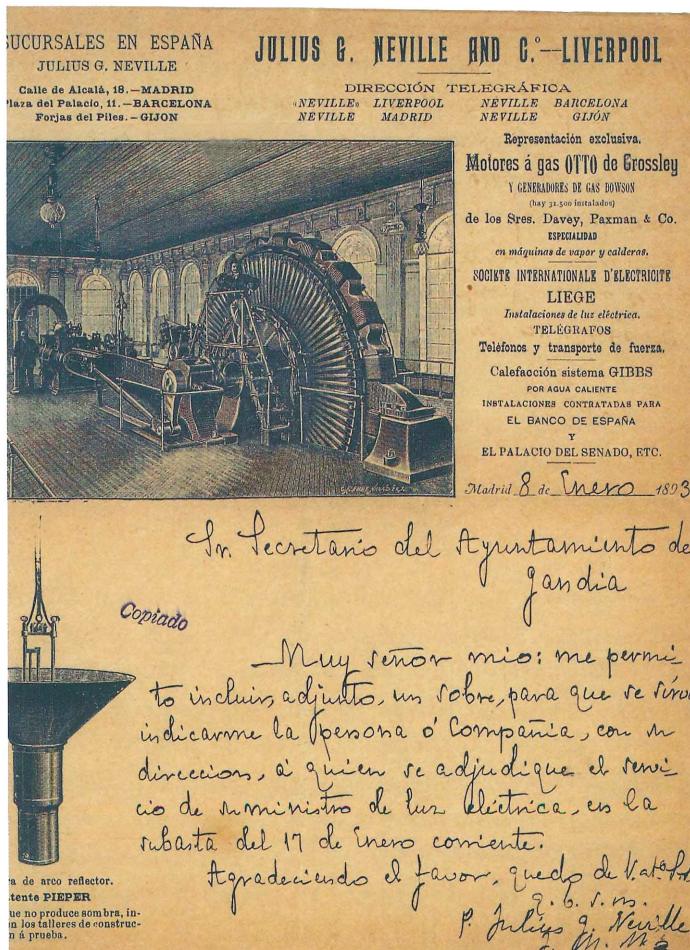 SUCURSALES EN ESPAÑA
JULIUS G. NEVILLE
Calle de Alcalá, 18.—MADRID
Plaza del Palacio, 11.—BARCELONA
Forjas del Piles.—GIJON
JULIUS G. NEVILLE AND C.º—LIVERPOOL
DIRECCIÓN TELEGRÁFICA
«NEVILLE» LIVERPOOL NEVILLE BARCELONA
NEVILLE MADRID NEVILLE GIJÓN
Representación exclusiva.
Motores á gas OTTO de Crossley
Y GENERADORES DE GAS DOWSON
(hay 31.500 instalados)
de los Sres. Davey, Paxman & Co.
ESPECIALIDAD
en máquinas de vapor y calderas.
SOCIETE INTERNATIONALE D'ELECTRICITE
LIEGE
Instalaciones de luz eléctrica.
TELÉGRAFOS
Teléfonos y transporte de fuerza.
Calefacción sistema GIBBS
POR AGUA CALIENTE
INSTALACIONES CONTRATADAS PARA
EL BANCO DE ESPAÑA
Y
EL PALACIO DEL SENADO, ETC.
Madrid 8 de Enero 1893
Sr. Secretario del Ayuntamiento de
Gandia
Copiado
Muy señor mio: me permi-
to incluir, adjunto, un sobre, para que se sirva
indicarme la persona ó Compañia, con su
direccion, á quien se adjudique el servi-
cio de suministro de luz eléctrica, en la
subasta del 17 de Enero corriente.
Agradeciendo el favor, quedo de V. at.º
q. b. s. m.
P. Julius G. Neville
ra de arco reflector.
tente PIEPER
ue no produce sombra, in-
n los talleres de construc-
n á prueba.